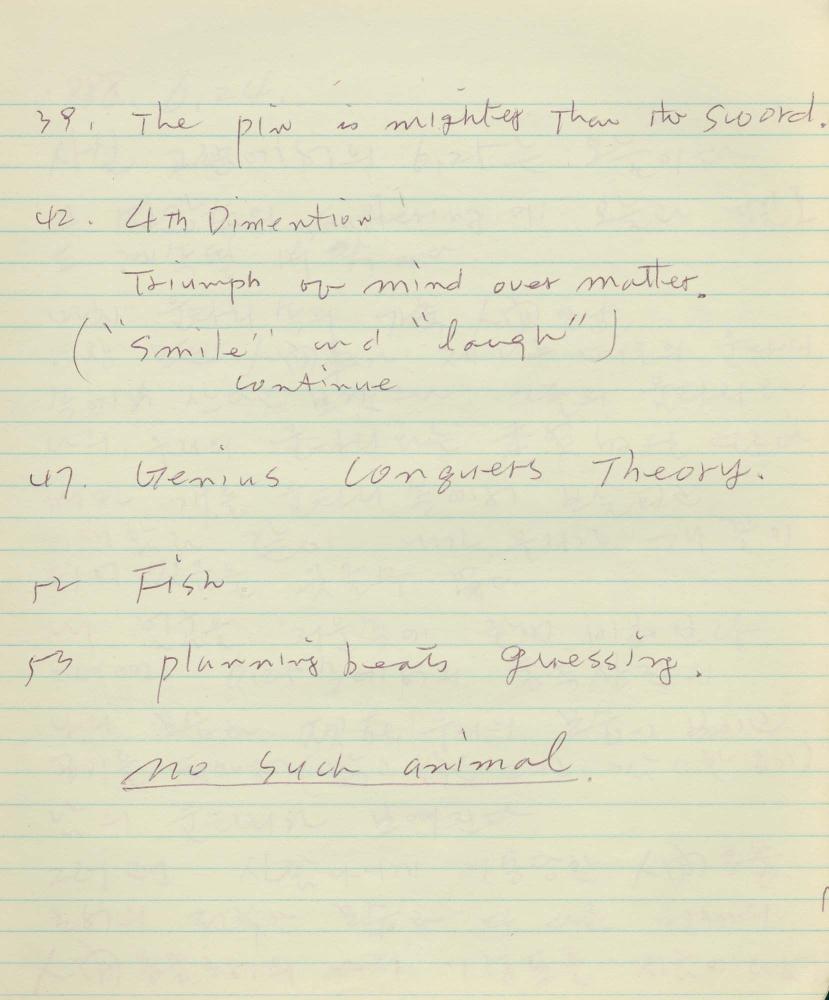 39. The pin is mightey Than the Sword.
42. 4th Dimention
Triumph of mind over matter.
("Smile" and "laugh")
continue
47. Genius Conquers Theory.
52 Fish
53 planning beats guessing.
no such animal.